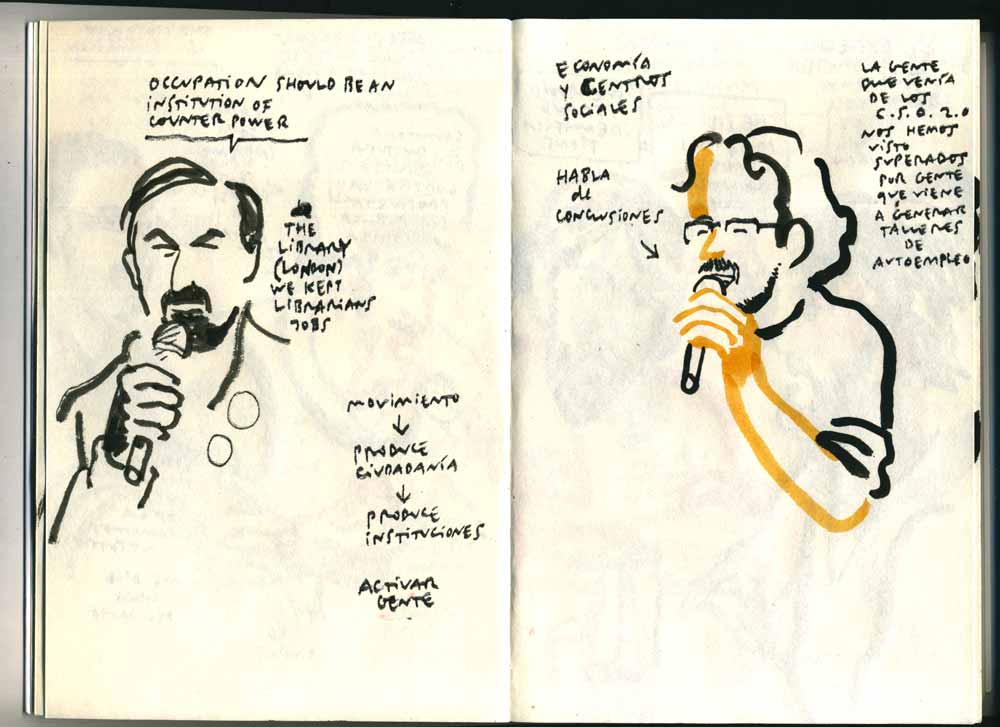 OCCUPATION SHOULD BE AN
INSTITUTION OF
COUNTER POWER
THE
LIBRARY
(LONDON)
WE KEPT
LIBRARIANS
JOBS
MOVIMIENTO
↓
PRODUCE
CIUDADANÍA
↓
PRODUCE
INSTITUCIONES
ACTIVAR
GENTE
ECONOMÍA
Y CENTROS
SOCIALES
HABLA
de
CONCLUSIONES
LA GENTE
QUE VENÍA
DE LOS
C.S.O. 2.0
NOS HEMOS
VISTO
SUPERADOS
POR GENTE
QUE VIENE
A GENERAR
TALLERES
DE
AUTOEMPLEO